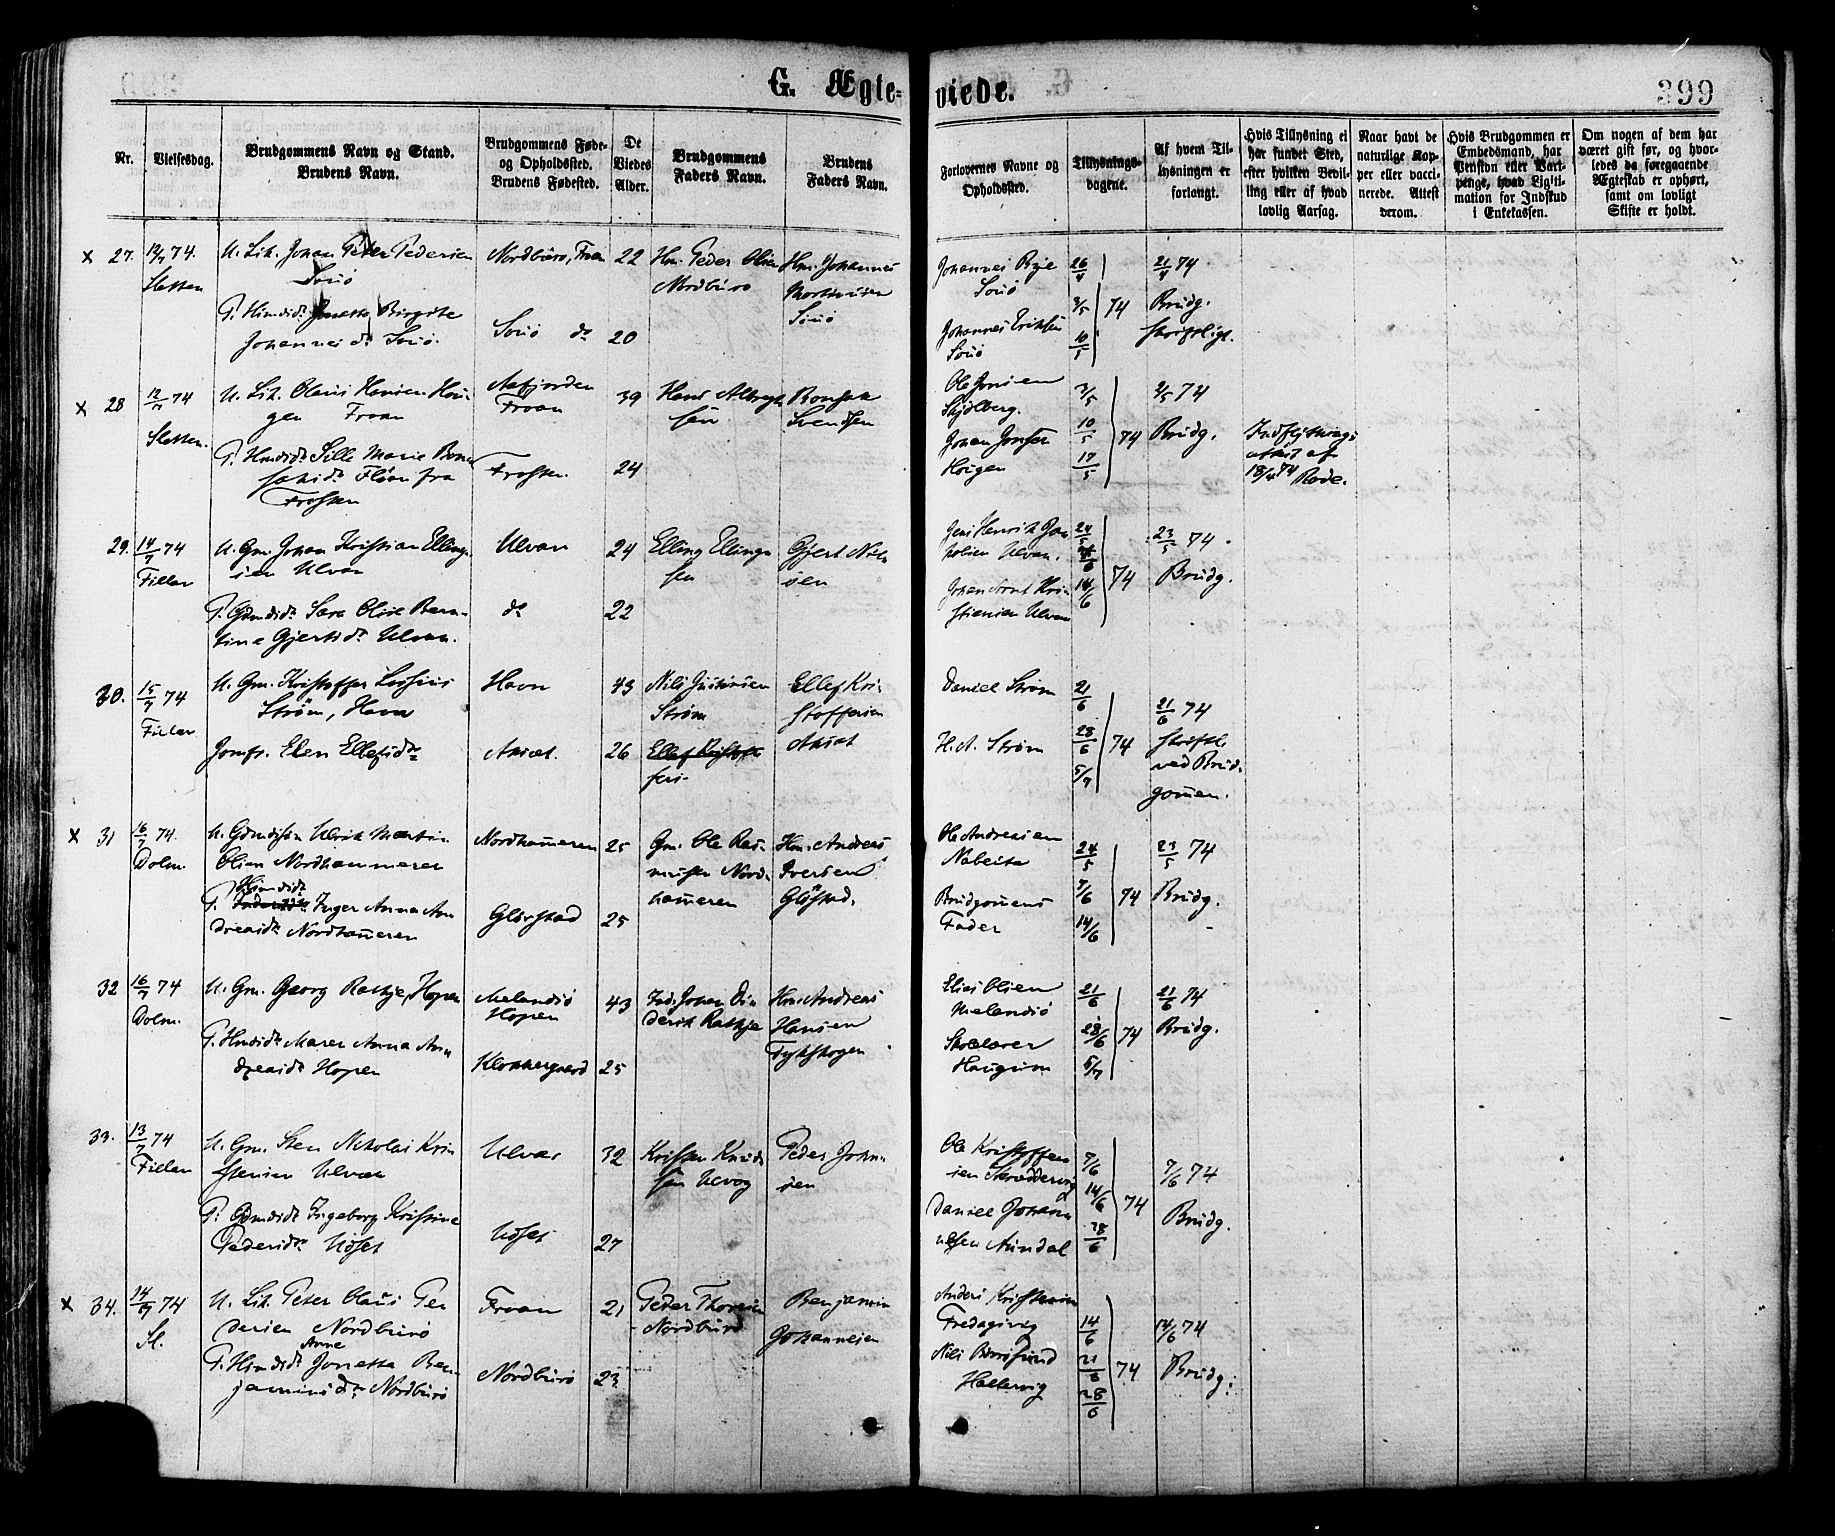 G. Ægte=
viede.
399
Nr.
Vielsesdag.
Brudgommens Navn og Stand.
Brudens Navn.
Brudgommens Føde-
og Opholdssted.
Brudens Fødested.
De
Viedes
Alder.
Brudgommens
Faders Navn.
Brudens
Faders Navn.
Forlovernes Navne og
Opholdssted.
Tillysnings-
dagene.
Af hvem Til-
lysningen er
forlangt.
Hvis Tillysning ei
har fundet Sted,
efter hvilken Bevil-
ling eller af hvad
lovlig Aarsag.
Naar havt de
naturlige Kop-
per eller vacci-
nerede. Attest
derom.
Hvis Brudgommen er
Embedsmand, har
Pension eller Vart-
penge, hvad Ligiti-
mation for Indskud
i Enkekassen.
Om nogen af dem har
været gift før, og hvor-
ledes da foregaaende
Ægteskab er ophørt,
samt om lovligt
Skifte er holdt.
x 27. 12/7 74.
Sletten
U. Lik. Johan Peter Pedersen
Souø
P. Hmdsdr Jonetta Birgitte
Johannesdr Souø.
Nordburø, Froan 22
Souø dr 20
Hm. Peder Olsen
Nordburø
Hm. Johannes
Mortensen
Souø
Johannes Bye
Souø
Johannes Eriksen
Souø
26/4
3/5 74
10/5
21/4 74
Brudg.
skriftligt.
x 28 12/7 74
Sletten.
U. Lik. Olaus Hansen Hou-
gen Froan
P. Hmdsdr Sille Marie Bon-
saksdr Fløan fra
Frosten
Aafjorden
Froan 39
Frosten 24
Hans Albregt-
sen
Bonsak
Svendsen
Ole Jonsen
Skjølberg.
Johan Jonsen
Hougen
3/5
10/5 74
17/5
2/5 74
Brudg.
Indflytnings-
attest af
18/4 74 Rode.
29. 14/7 74
Fillan
U. Gm. Johan Kristian Elling-
sen Ulvan
P. Gdmdsdr Sara Oline Bern-
tine Gjertsdr Ulvan.
Ulvan 24
dr 22
Elling Elling-
sen
Gjert Niel-
sen
Jens Henrik
Ulvan.
Johan Arnt Kri-
stiansen Ulvan
24/5
14/6 74
23/5 74.
Brudg.
30. 15/7 74
Fillan
U. Gm. Kristoffer Lossius
Strøm, Havn
Jomfr. Elen Ellefsdr
Havn 43
Ansæt. 26
Nils Justinsen
Strøm
Ellef Kristoff-
sen
Ellef Kri-
stoffersen
Ansæt
Daniel Strøm
H. A. Strøm
21/6
28/6 74
5/7
21/6 74
skriftl.
ved Brud-
gomen.
x 31 16/7 74.
Dolm
U. Gdmdssøn Ulrik Martin
Olsen Nordhammeren
Hmdsdr
P. Inger Anna An-
dreasdr Nordhameren
Nordhameren 25
Gløstad 25
Gm. Ole Ras-
mussen Nord-
hameren
Hm. Andreas
Iversen
Gløstad.
Ole Andreasen
Nabeita
Brudgomens
Fader
24/5
7/6 74
14/6
23/5 74
Brudg.
32 16/7 74
Dolm.
U. Gm. Georg Ratkje, Hopen
P. Hmdsdr Maren Anna An-
dreasdr Hopen
Melandsø
Hopen 43
Klokkergaard 25
Ind. Johan Di-
derik Ratkje
Hm. Andreas
Hansen
Tykskogen
Elias Olsen
Melandsø
Skolelærer
Haugum
21/6
28/6 74
5/7
21/6 74
Brudg.
33. 13/7 74
Fillan
U. Gm. Sten Nikolai Kri-
stensen Ulvan
P. Gdmdsdr Ingeborg Kristine
Pedersdr Uøset
Ulvan 32
Uøset 27
Kristen Knud-
sen Ulvog
Peder John-
sen
Ole Kristoffer-
sen Skreddervig
Daniel Johan-
nesen Aundal
7/6
14/6 74
28/6
7/6 74
Brudg.
x 34. 14/7 74
Sl.
U. Lik. Peter Olaus Pe-
dersen Nordburø
Anne
P. Hmdsdr Jonetta Ben-
jaminsdr Nordburø
Froan 21
Nordburø 23
Peder Thoresen
Nordburø
Benjamin
Johannesen
Anders Kristensen
Fredagsvig
Nils Borøsund
Hallervig
14/6
21/6 74
28/6
14/6 74
Brudg.